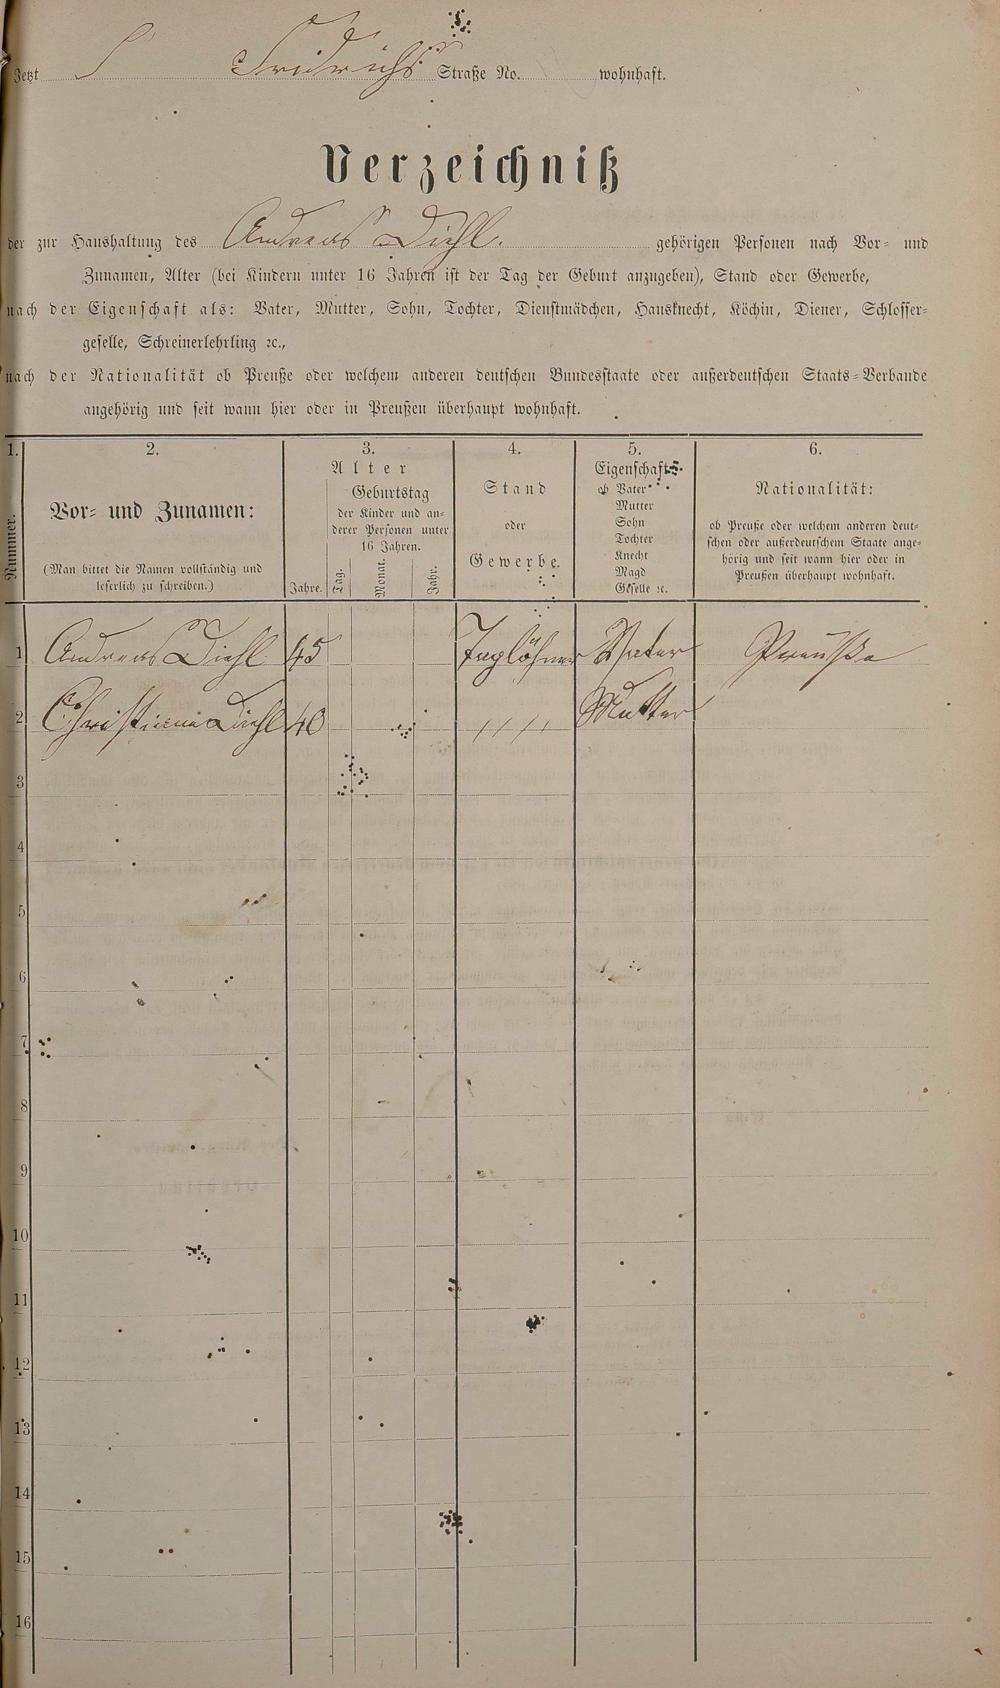 Jetzt Fridrichs Straße No. wohnhaft.
Verzeichniß
der zur Haushaltung des Andreas Diehl. gehörigen Personen nach Vor- und
Zunamen, Alter (bei Kindern unter 16 Jahren ist der Tag der Geburt anzugeben), Stand oder Gewerbe,
nach der Eigenschaft als: Vater, Mutter, Sohn, Tochter, Dienstmädchen, Hausknecht, Köchin, Diener, Schlosser-
geselle, Schreinerlehrling ꝛc.,
nach der Nationalität ob Preuße oder welchem anderen deutschen Bundesstaate oder außerdeutschen Staats-Verbande
angehörig und seit wann hier oder in Preußen überhaupt wohnhaft.
1. 2. 3. 4. 5. 6.
Nummer.
Vor- und Zunamen:
(Man bittet die Namen vollständig und
leserlich zu schreiben.)
Alter
Jahre.
Geburtstag
der Kinder und an-
derer Personen unter
16 Jahren.
Tag. Monat. Jahr.
Stand
oder
Gewerbe.
Eigenschaft
ob Vater
Mutter
Sohn
Tochter
Knecht
Magd
Geselle ꝛc.
Nationalität:
ob Preuße oder welchem anderen deut-
schen oder außerdeutschem Staate ange-
hörig und seit wann hier oder in
Preußen überhaupt wohnhaft.
1 Andreas Diehl 45 Taglöhner Vater Preußse
2 Christiane Diehl 40 //// Mutter
3
4
5
6
7
8
9
10
11
12
13
14
15
16